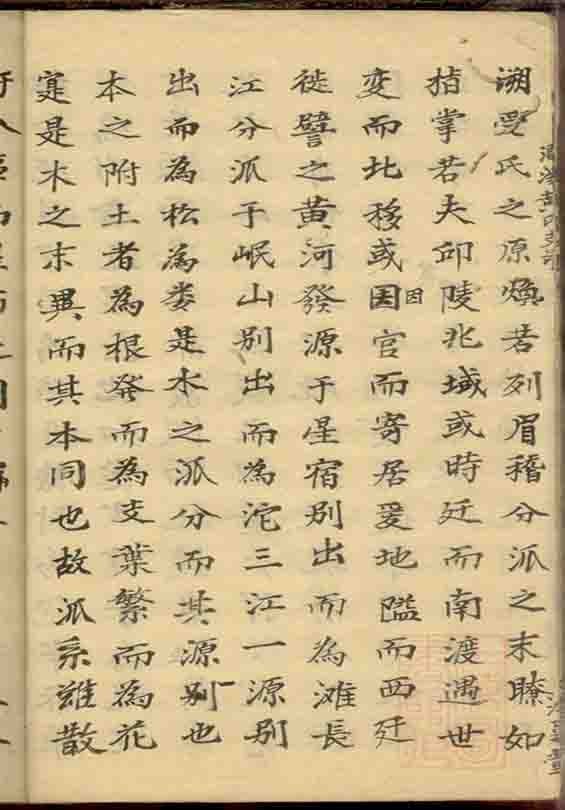 溯受氏之原煥若列眉稽分派之末瞭如
指掌若夫邱陵兆域或時迁而南渡遇世
变而北移或因官而寄居爰地隘而西迁
因
徙譬之黄河發源于星宿别出而為滩長
江分派于岷山别出而為沱三江一源别
出而為松為娄是水之派分而其源别也
一
本之附土者為根發而為支葉繁而為花
寔是木之末異而其本同也故派系雖散